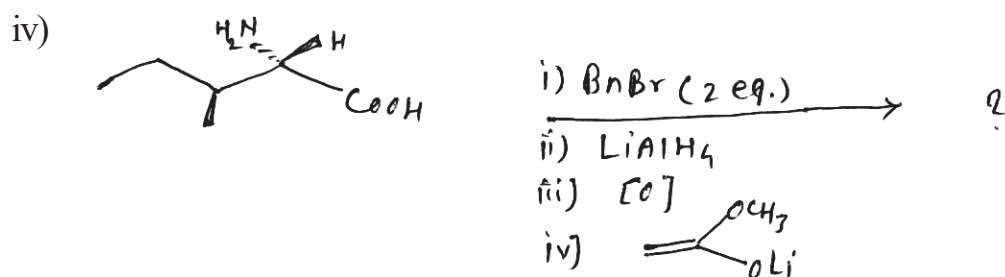 iv)
H₂N
H
COOH
i) BnBr (2 eq.)
ii) LiAlH₄
iii) [O]
iv)
OCH₃
OLi
?